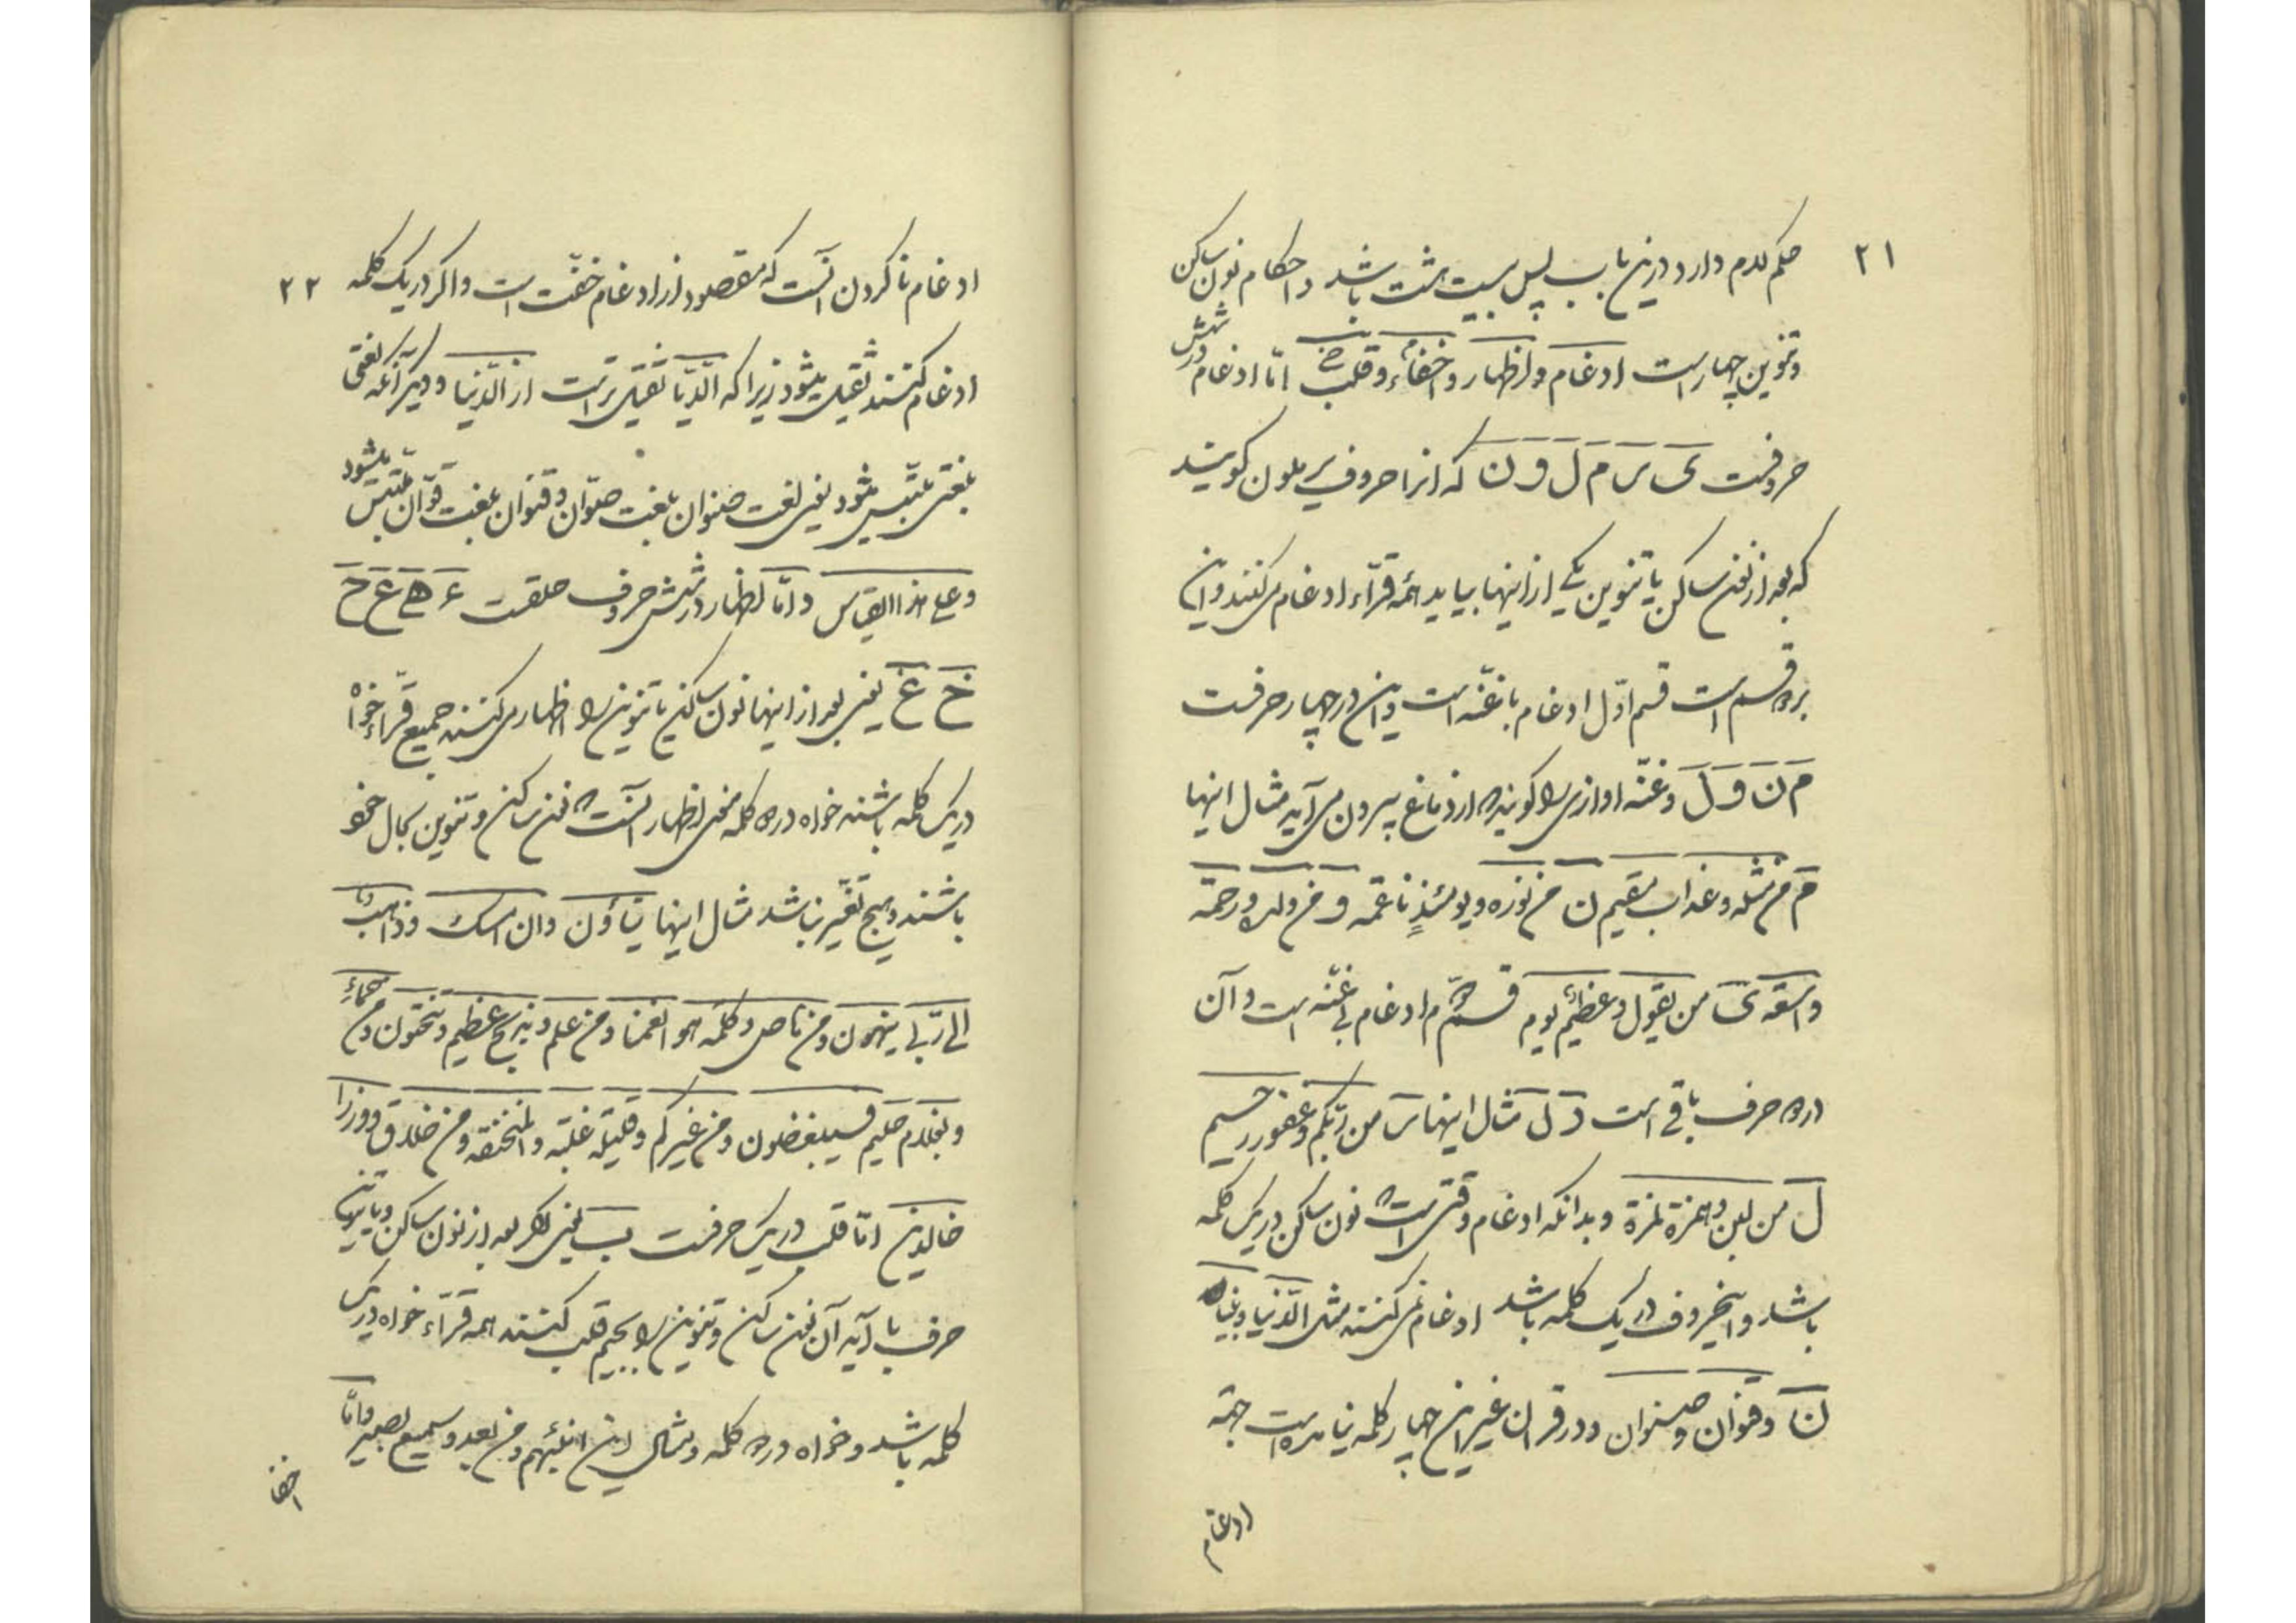 ۲۱
حکم لام دارد درین باب پس بیست هشت باشد و احکام نون ساکن
و تنوین چهار است ادغام و اظهار و اخفاء و قلب امّا ادغام در شش
حرفست ی ر م ل و ن که انرا حروف یرملون کویند
که بعد از نون ساکن یا تنوین یکی از اینها بیاید همه قرّاء ادغام می‌کنند و این
بر دو قسم است قسم اوّل ادغام با غنّه است و این در چهار حرفست
م ن و ل و غنّه اوازی را کویند که از دماغ بیرون می‌آید مثال اینها
م من مثله و عذاب مقیم ن من نوره و یومئذٍ ناعمة و من ولی و رحمة
واسعة ی من یقول و عظیم یوم قسم دوّم ادغام بی غنّه است و آن
در دو حرف باقی است ر ل مثال اینها ر من ربّکم و غفور رحیم
ل من لبن و همزة لمزة و بدانکه ادغام وقتی است که نون ساکن در یک کلمه
باشد و اینحروف در یک کلمه باشد ادغام نمی‌کنند مثل الدّنیا و بنیان
ن و قنوان و صنوان و در قران غیر این چهار کلمه نیامده است جهة
ادغام
۲۲
ادغام ناکردن انست که مقصود از ادغام خفّت است و اکر در یک کلمه
ادغام کنند ثقیل میشود زیرا که الدّیّا ثقیل تر است از الدّنیا و دیکر آنکه لغتی
بلغتی ملتبس میشود یعنی لغت صنوان بلغت صوّان و قنوان بلغت قوّان ملتبس میشود
و علی هذا القیاس و امّا اظهار در شش حروف حلقست ء ه ع ح
خ غ یعنی بعد از اینها نون ساکن یا تنوین را اظهار می‌کنند جمیع قرّاء خواه
در یک کلمه باشند خواه در دو کلمه معنی اظهار انست که نون ساکن و تنوین بحال خود
باشند و هیچ تغیّر نباشد مثال اینها ینأون و ان امسک و ذاهب
الی ربّی ینهون و من ناصر و کلمة هو انعمنا و من علم و بریح عظیم و تنحتون و من حماء
و بغلام حلیم فسینغضون و من غیرکم و قلیلة غلبة و المنخنقة و من خلاق و وزرا
خالدین امّا قلب در یک حرفست ب یعنی اکر بعد از نون ساکن و یا تنوین
حرف با آید آن نون ساکن و تنوین را بمیم قلب کنند همه قرّاء خواه در یک
کلمه باشد و خواه در دو کلمه و مثال این انبئهم و من بعد و سمیع بصیر و امّا
اخفا